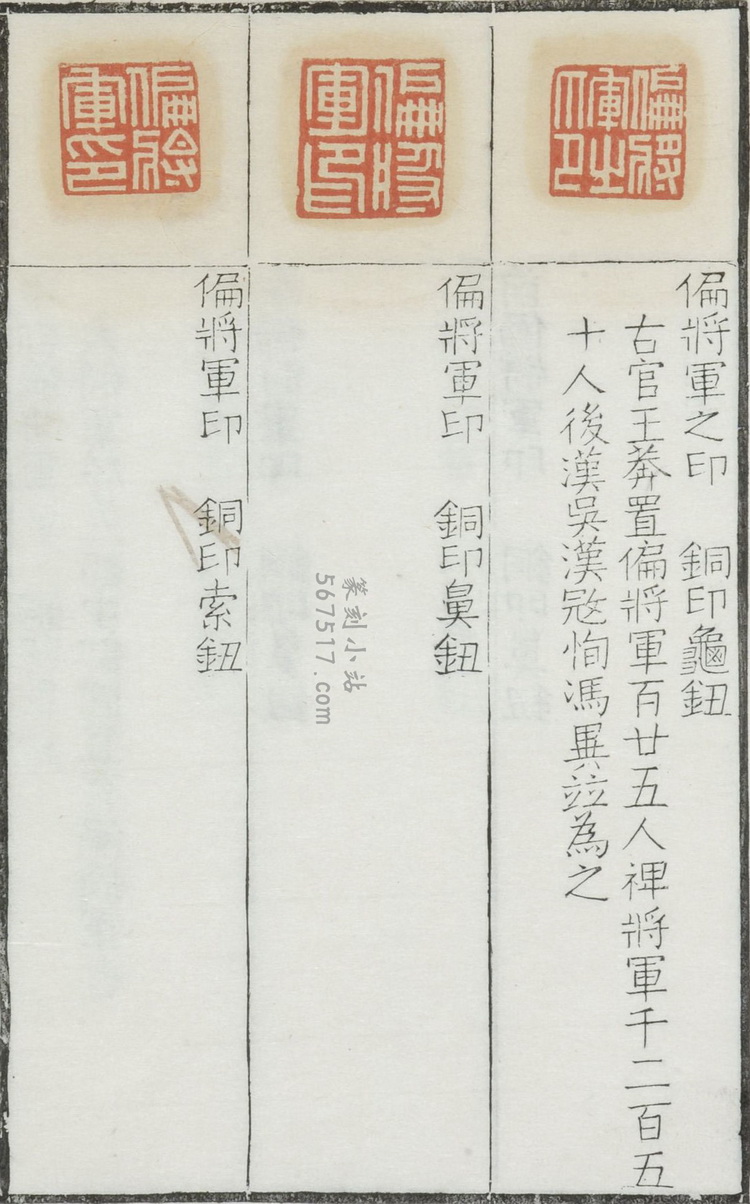 偏將軍之印
偏將軍之印　銅印龜鈕
右官王莽置偏將軍百廿五人裨將軍千二百五
十人後漢吳漢冦恂馮異竝為之
偏將軍印
偏將軍印　銅印鼻鈕
偏將軍印
偏將軍印　銅印索鈕
篆刻小站
567517.com